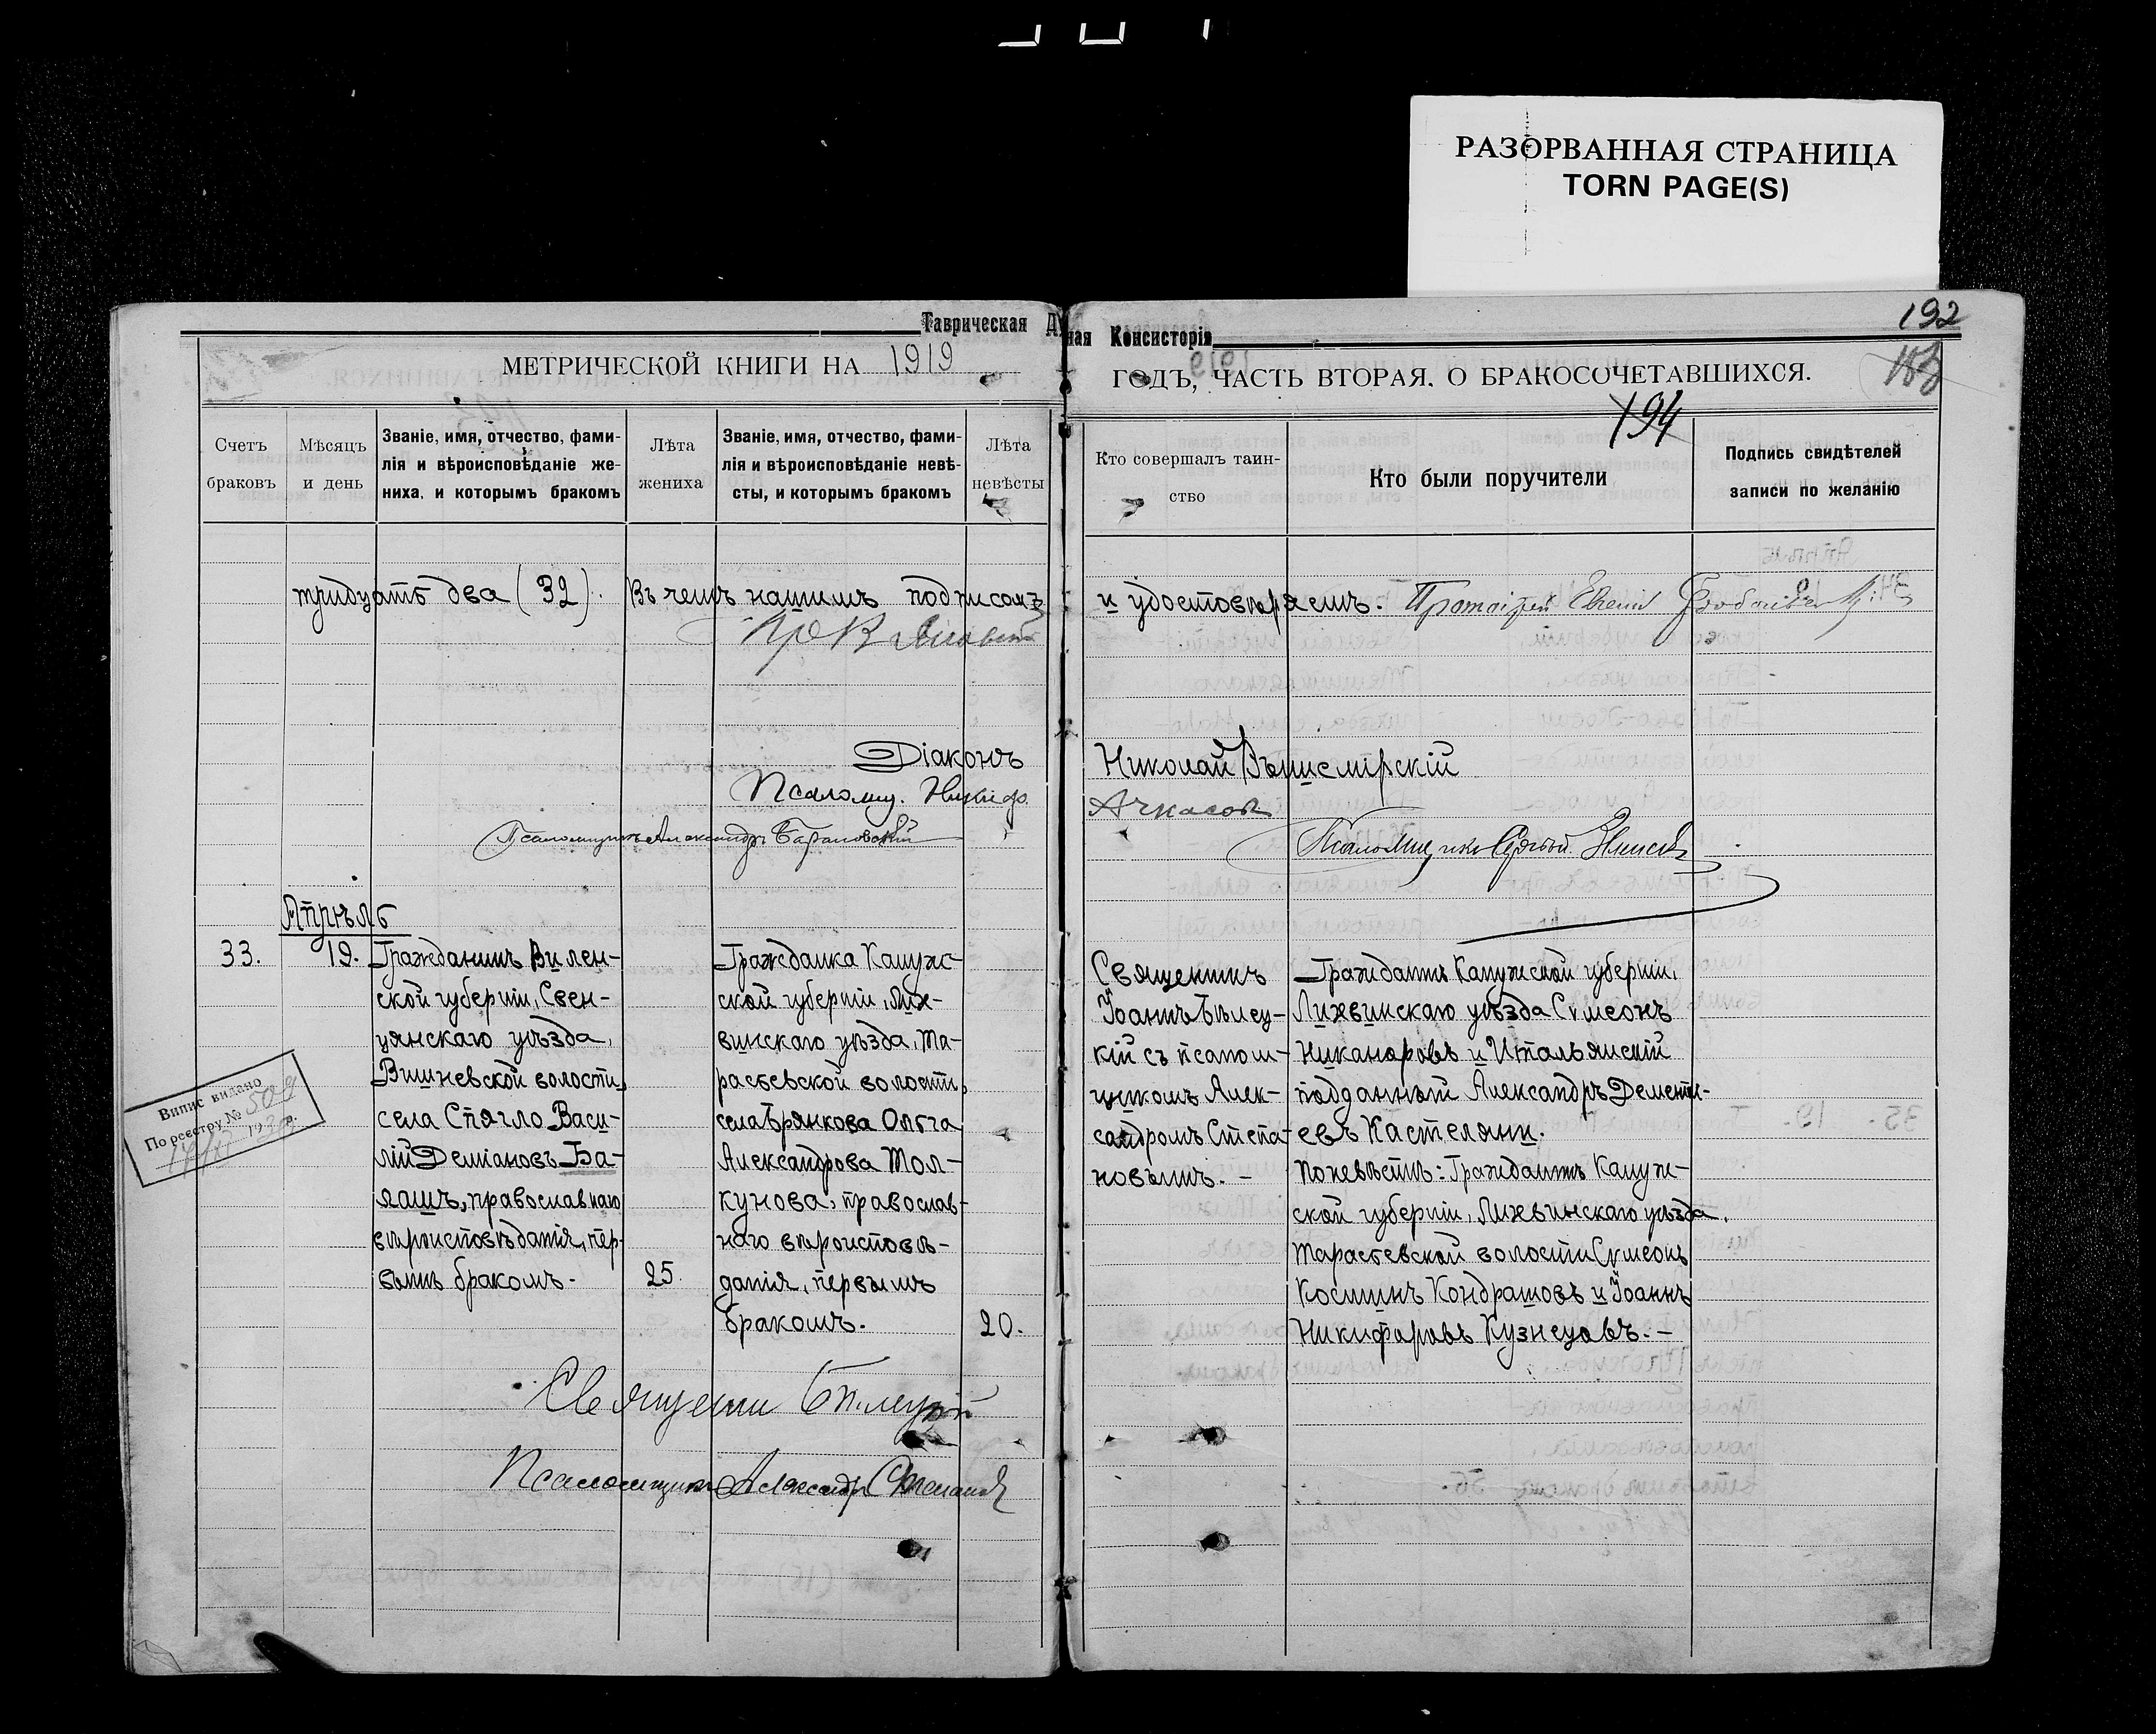 РАЗОРВАННАЯ СТРАНИЦА
TORN PAGE(S)
192
Таврическая Ду
ная Консисторія
МЕТРИЧЕСКОЙ КНИГИ НА 1919
ГОДЪ, ЧАСТЬ ВТОРАЯ. О БРАКОСОЧЕТАВШИХСЯ.
194
Счетъ браковъ
Мѣсяцъ и день
Званіе, имя, отчество, фами-
лія и вѣроисповѣданіе же-
ниха, и которымъ бракомъ
Лѣта жениха
Званіе, имя, отчество, фами-
лія и вѣроисповѣданіе невѣ-
сты, и которымъ бракомъ
Лѣта невѣсты
Кто совершалъ таин-
ство
Кто были поручители
Подпись свидѣтелей
записи по желанію
тридцать два (32). Въ чемъ нашимъ подписомъ и удостовѣряемъ. Протоіерей Евгеній
Діаконъ Николай Вышемірскій
Псаломщ. Никиф. Ачкасовъ
Псаломщикъ Александръ Барановскій
Псаломщикъ
Апрѣль
33.
19.
Гражданинъ Вилен-
ской губерніи, Свен-
цянскаго уѣзда,
Вишневской волости,
села Стягло Васи-
лій Деміановъ Ба-
яшъ, православнаго
вѣроисповѣданія, пер-
вымъ бракомъ.
25.
Гражданка Калуж-
ской губерніи, Лих-
винскаго уѣзда, Та-
расьевской волости,
села Брянкова Ольга
Александрова Тол-
кунова, православ-
наго вѣроисповѣ-
данія, первымъ
бракомъ.
20.
Священникъ
Іоаннъ Бѣлец-
кій съ псалом-
щикомъ Алек-
сандромъ Степа-
новымъ.
Гражданинъ Калужской губерніи,
Лихвинскаго уѣзда Сѵмеонъ
Никаноровъ и Итальянскій
подданный Александръ Дементі-
евъ Кастеляни.
По невѣстѣ: Гражданинъ Калуж-
ской губерніи, Лихвинскаго уѣзда,
Тарасьевской волости Сѵмеонъ
Косминъ Кондрашовъ и Іоаннъ
Никифоровъ Кузнецовъ.
Випис видано
По реєстру № 504
193 р.
Священникъ Бѣлецкій
Псаломщикъ Александръ Степановъ